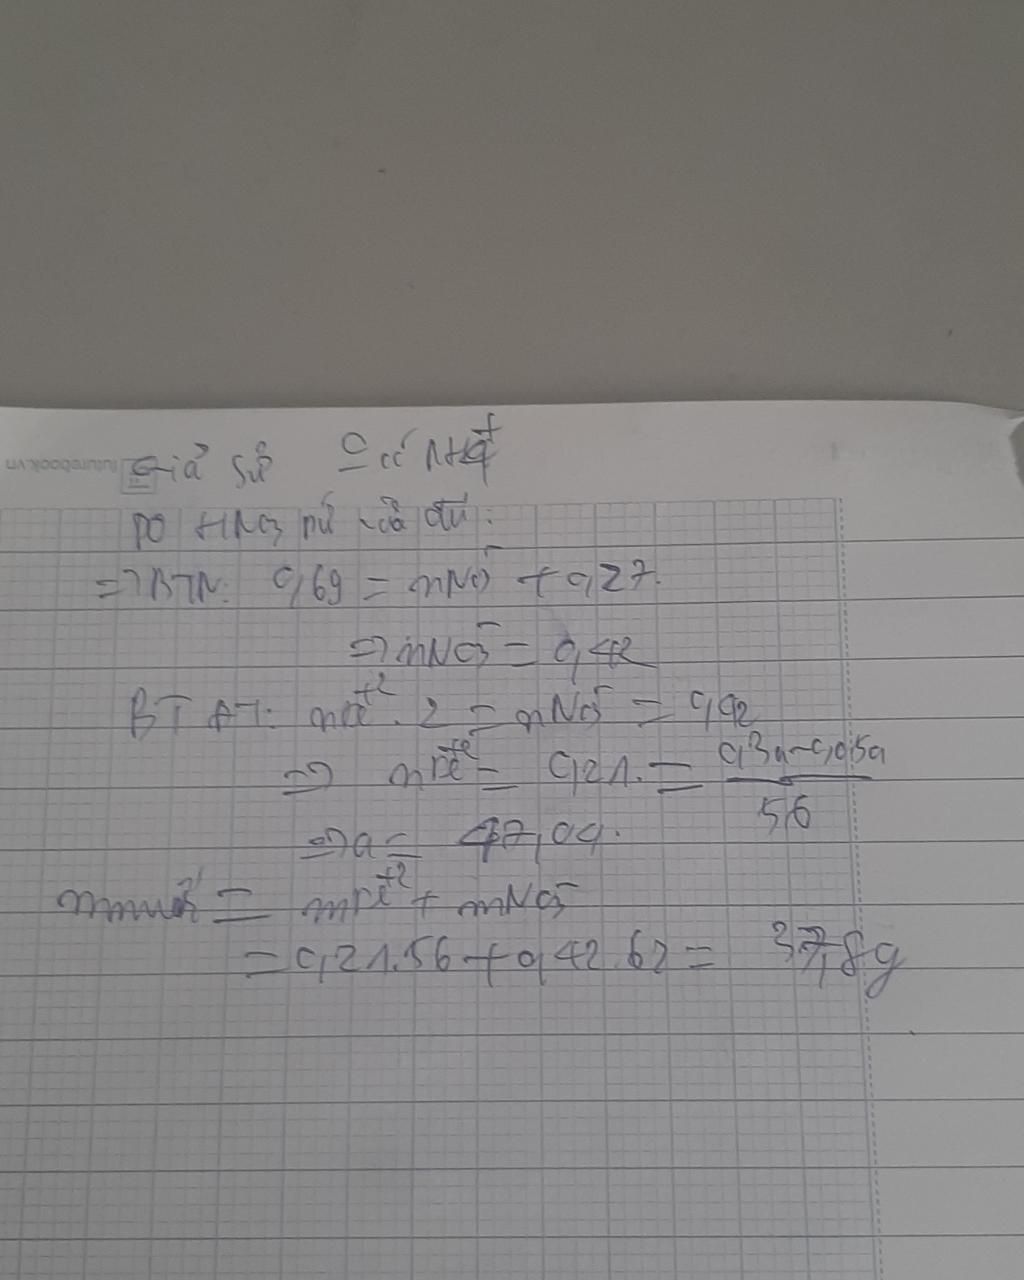 futurebook.vn
Giả sử có NH4+
Do HNO3 pứ vừa đủ:
=> BTN: 0,69 = nNO3- + 0,27.
=> nNO3- = 0,42
BT ĐT: nFe+2 . 2 = nNO3- = 0,42
=> nFe+2 = 0,21. = 0,3a-0,05a / 56
=> a = 47,04.
mmuối = mFe+2 + mNO3-
= 0,21.56 + 0,42.62 = 37,8g